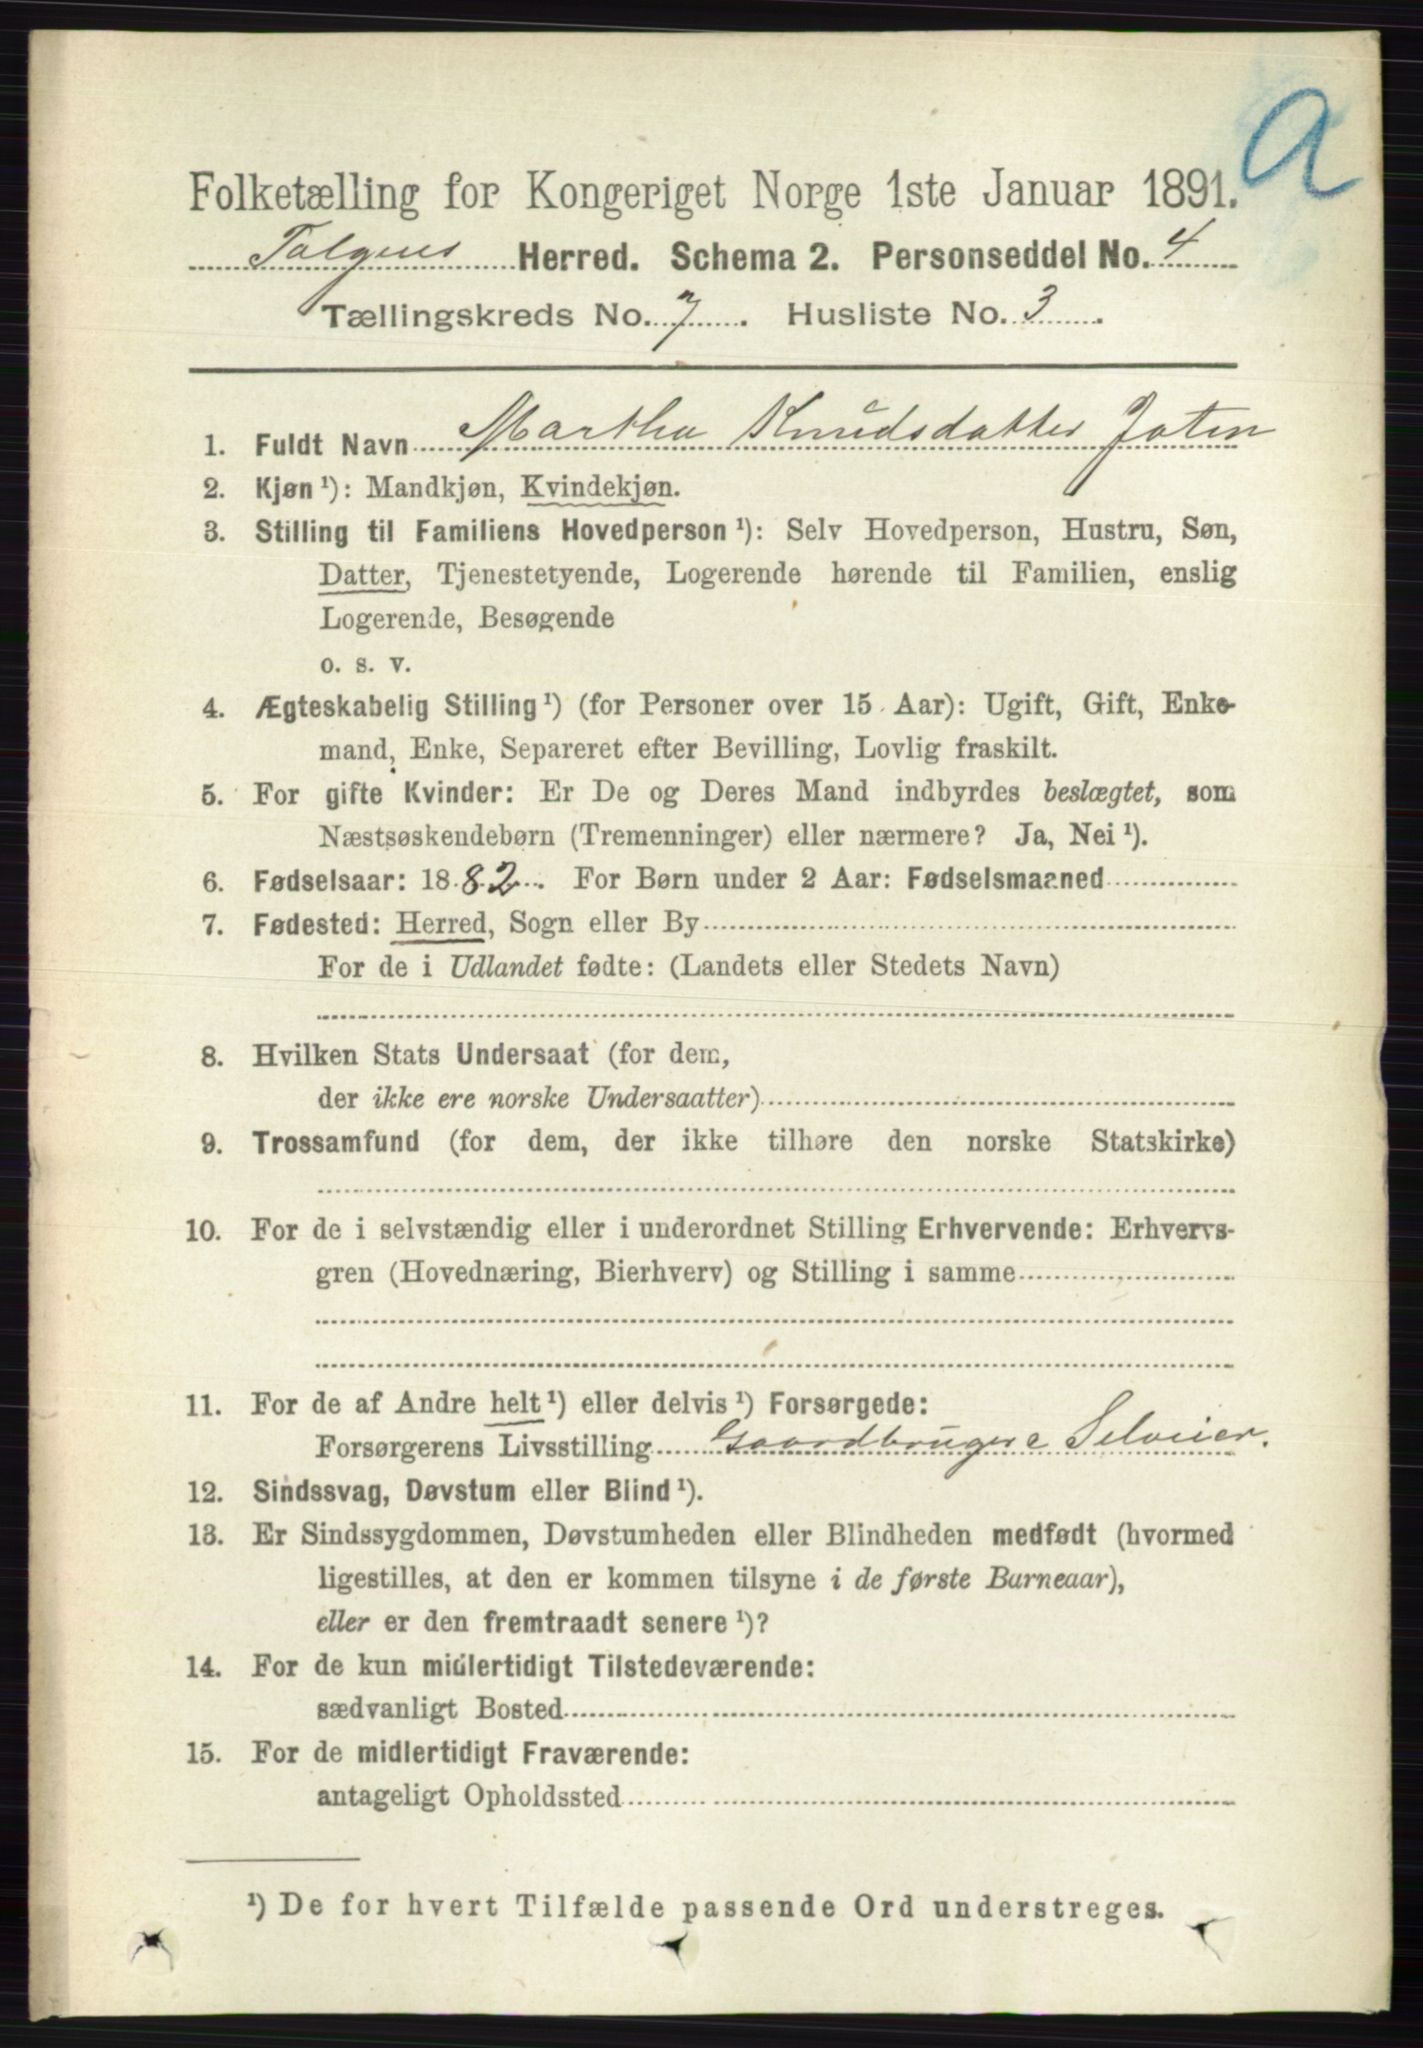 a
Folketælling for Kongeriget Norge 1ste Januar 1891.
Tolgens Herred. Schema 2. Personseddel No. 4
Tællingskreds No. 7. Husliste No. 3.
1. Fuldt Navn Martha Knudsdatter Joten
2. Kjøn ¹): Mandkjøn, Kvindekjøn.
3. Stilling til Familiens Hovedperson ¹): Selv Hovedperson, Hustru, Søn,
Datter, Tjenestetyende, Logerende hørende til Familien, enslig
Logerende, Besøgende
o. s. v.
4. Ægteskabelig Stilling ¹) (for Personer over 15 Aar): Ugift, Gift, Enke-
mand, Enke, Separeret efter Bevilling, Lovlig fraskilt.
5. For gifte Kvinder: Er De og Deres Mand indbyrdes beslægtet, som
Næstsøskendebørn (Tremenninger) eller nærmere? Ja, Nei ¹).
6. Fødselsaar: 1882. For Børn under 2 Aar: Fødselsmaaned
7. Fødested: Herred, Sogn eller By
For de i Udlandet fødte: (Landets eller Stedets Navn)
8. Hvilken Stats Undersaat (for dem,
der ikke ere norske Undersaatter)
9. Trossamfund (for dem, der ikke tilhøre den norske Statskirke)
10. For de i selvstændig eller i underordnet Stilling Erhvervende: Erhvervs-
gren (Hovednæring, Bierhverv) og Stilling i samme
11. For de af Andre helt ¹) eller delvis ¹) Forsørgede:
Forsørgerens Livsstilling Gaardbruger e Selveier.
12. Sindssvag, Døvstum eller Blind ¹).
13. Er Sindssygdommen, Døvstumheden eller Blindheden medfødt (hvormed
ligestilles, at den er kommen tilsyne i de første Barneaar),
eller er den fremtraadt senere ¹)?
14. For de kun midlertidigt Tilstedeværende:
sædvanligt Bosted
15. For de midlertidigt Fraværende:
antageligt Opholdssted
¹) De for hvert Tilfælde passende Ord understreges.